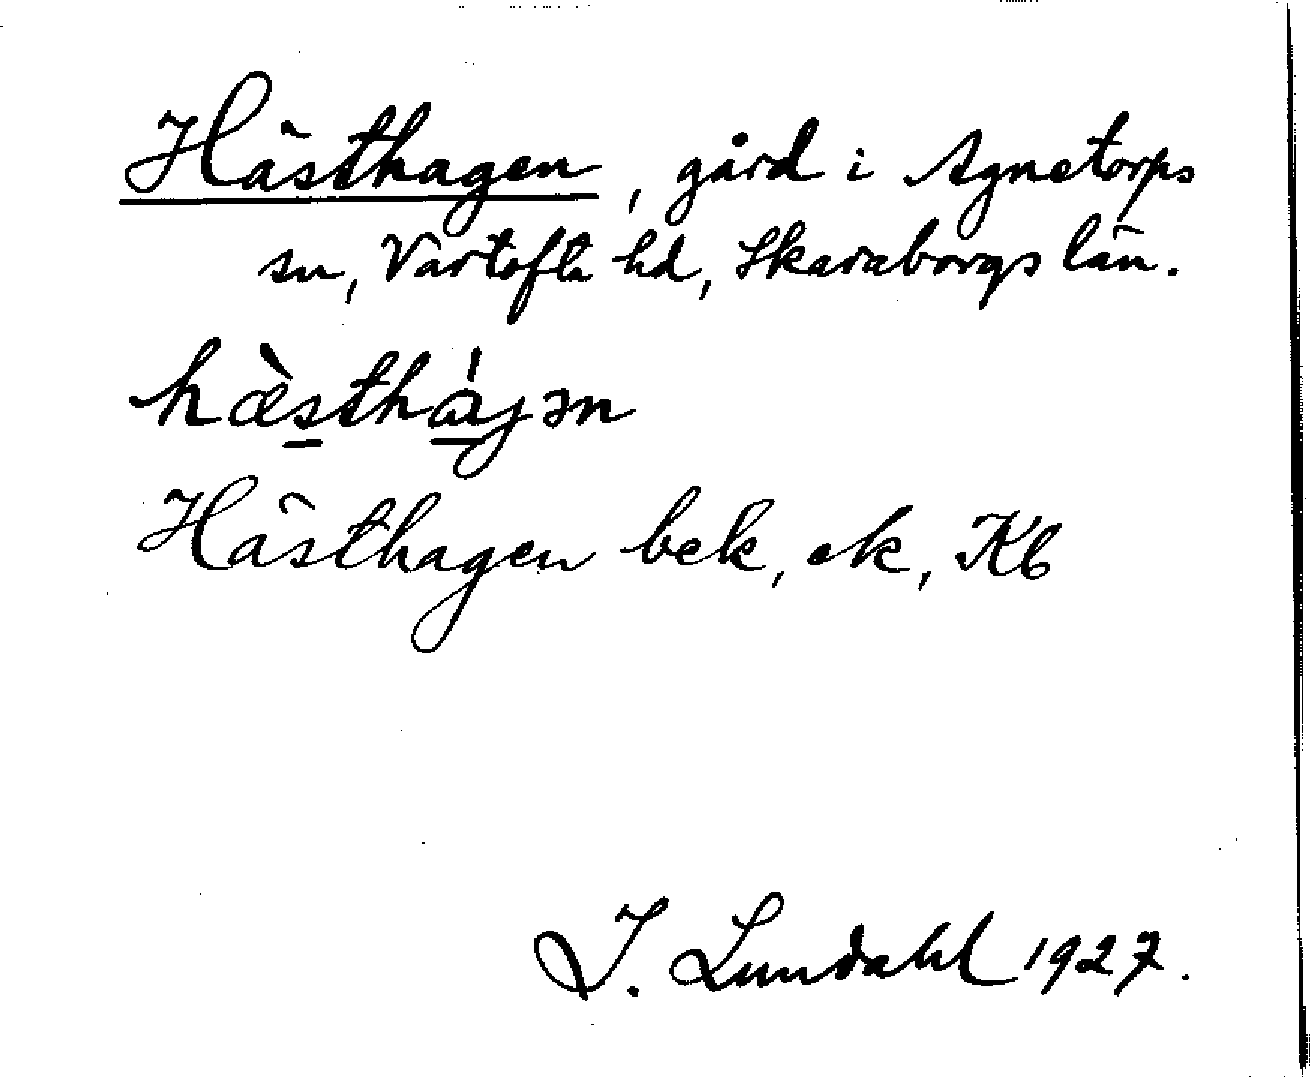 Hästhagen, gård i Agnetorps
sn, Vartofta hd, Skaraborgs län.
hæ̀sthɑ́jən
Hästhagen bek, ek, Kb
I. Lundahl 1927.